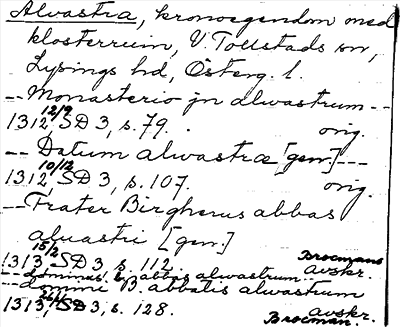 Alvastra, kronoegendom med
klosterruin, V. Tollstads sn,
Lysings hd, Österg. l.
-- Monasterio jn alwastrum --
1312 12/9, SD 3, s. 79. orig.
-- Datum alwastræ [gen.] ---
1312 10/12, SD 3, s. 107. orig.
-- Frater Birgherus abbas
aluastri [gen.]
1313 15/2 SD 3, s. 112. Brocmans avskr.
-- dominus b. abbas alwastrum --
-- domini B. abbatis alwastrum
1313, SD 3, s. 128. avskr. Brocman.